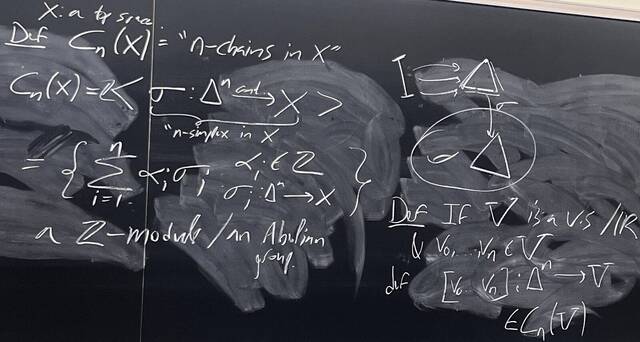 X: a top space
Def Cₙ(X) = "n-chains in X"
Cₙ(X) = ℤ< σ : Δⁿ cont→ X >
"n-simplex in X
= { Σᵢ₌₁ⁿ αᵢσᵢ αᵢ ∈ ℤ
σᵢ : Δⁿ → X }
a ℤ-module / an Abelian
group.
I Δ
σ
Def If V is a v.s /ℝ
& v₀, ..., vₙ ∈ V
def [v₀ .. vₙ] : Δⁿ → V
∈ Cₙ(V)